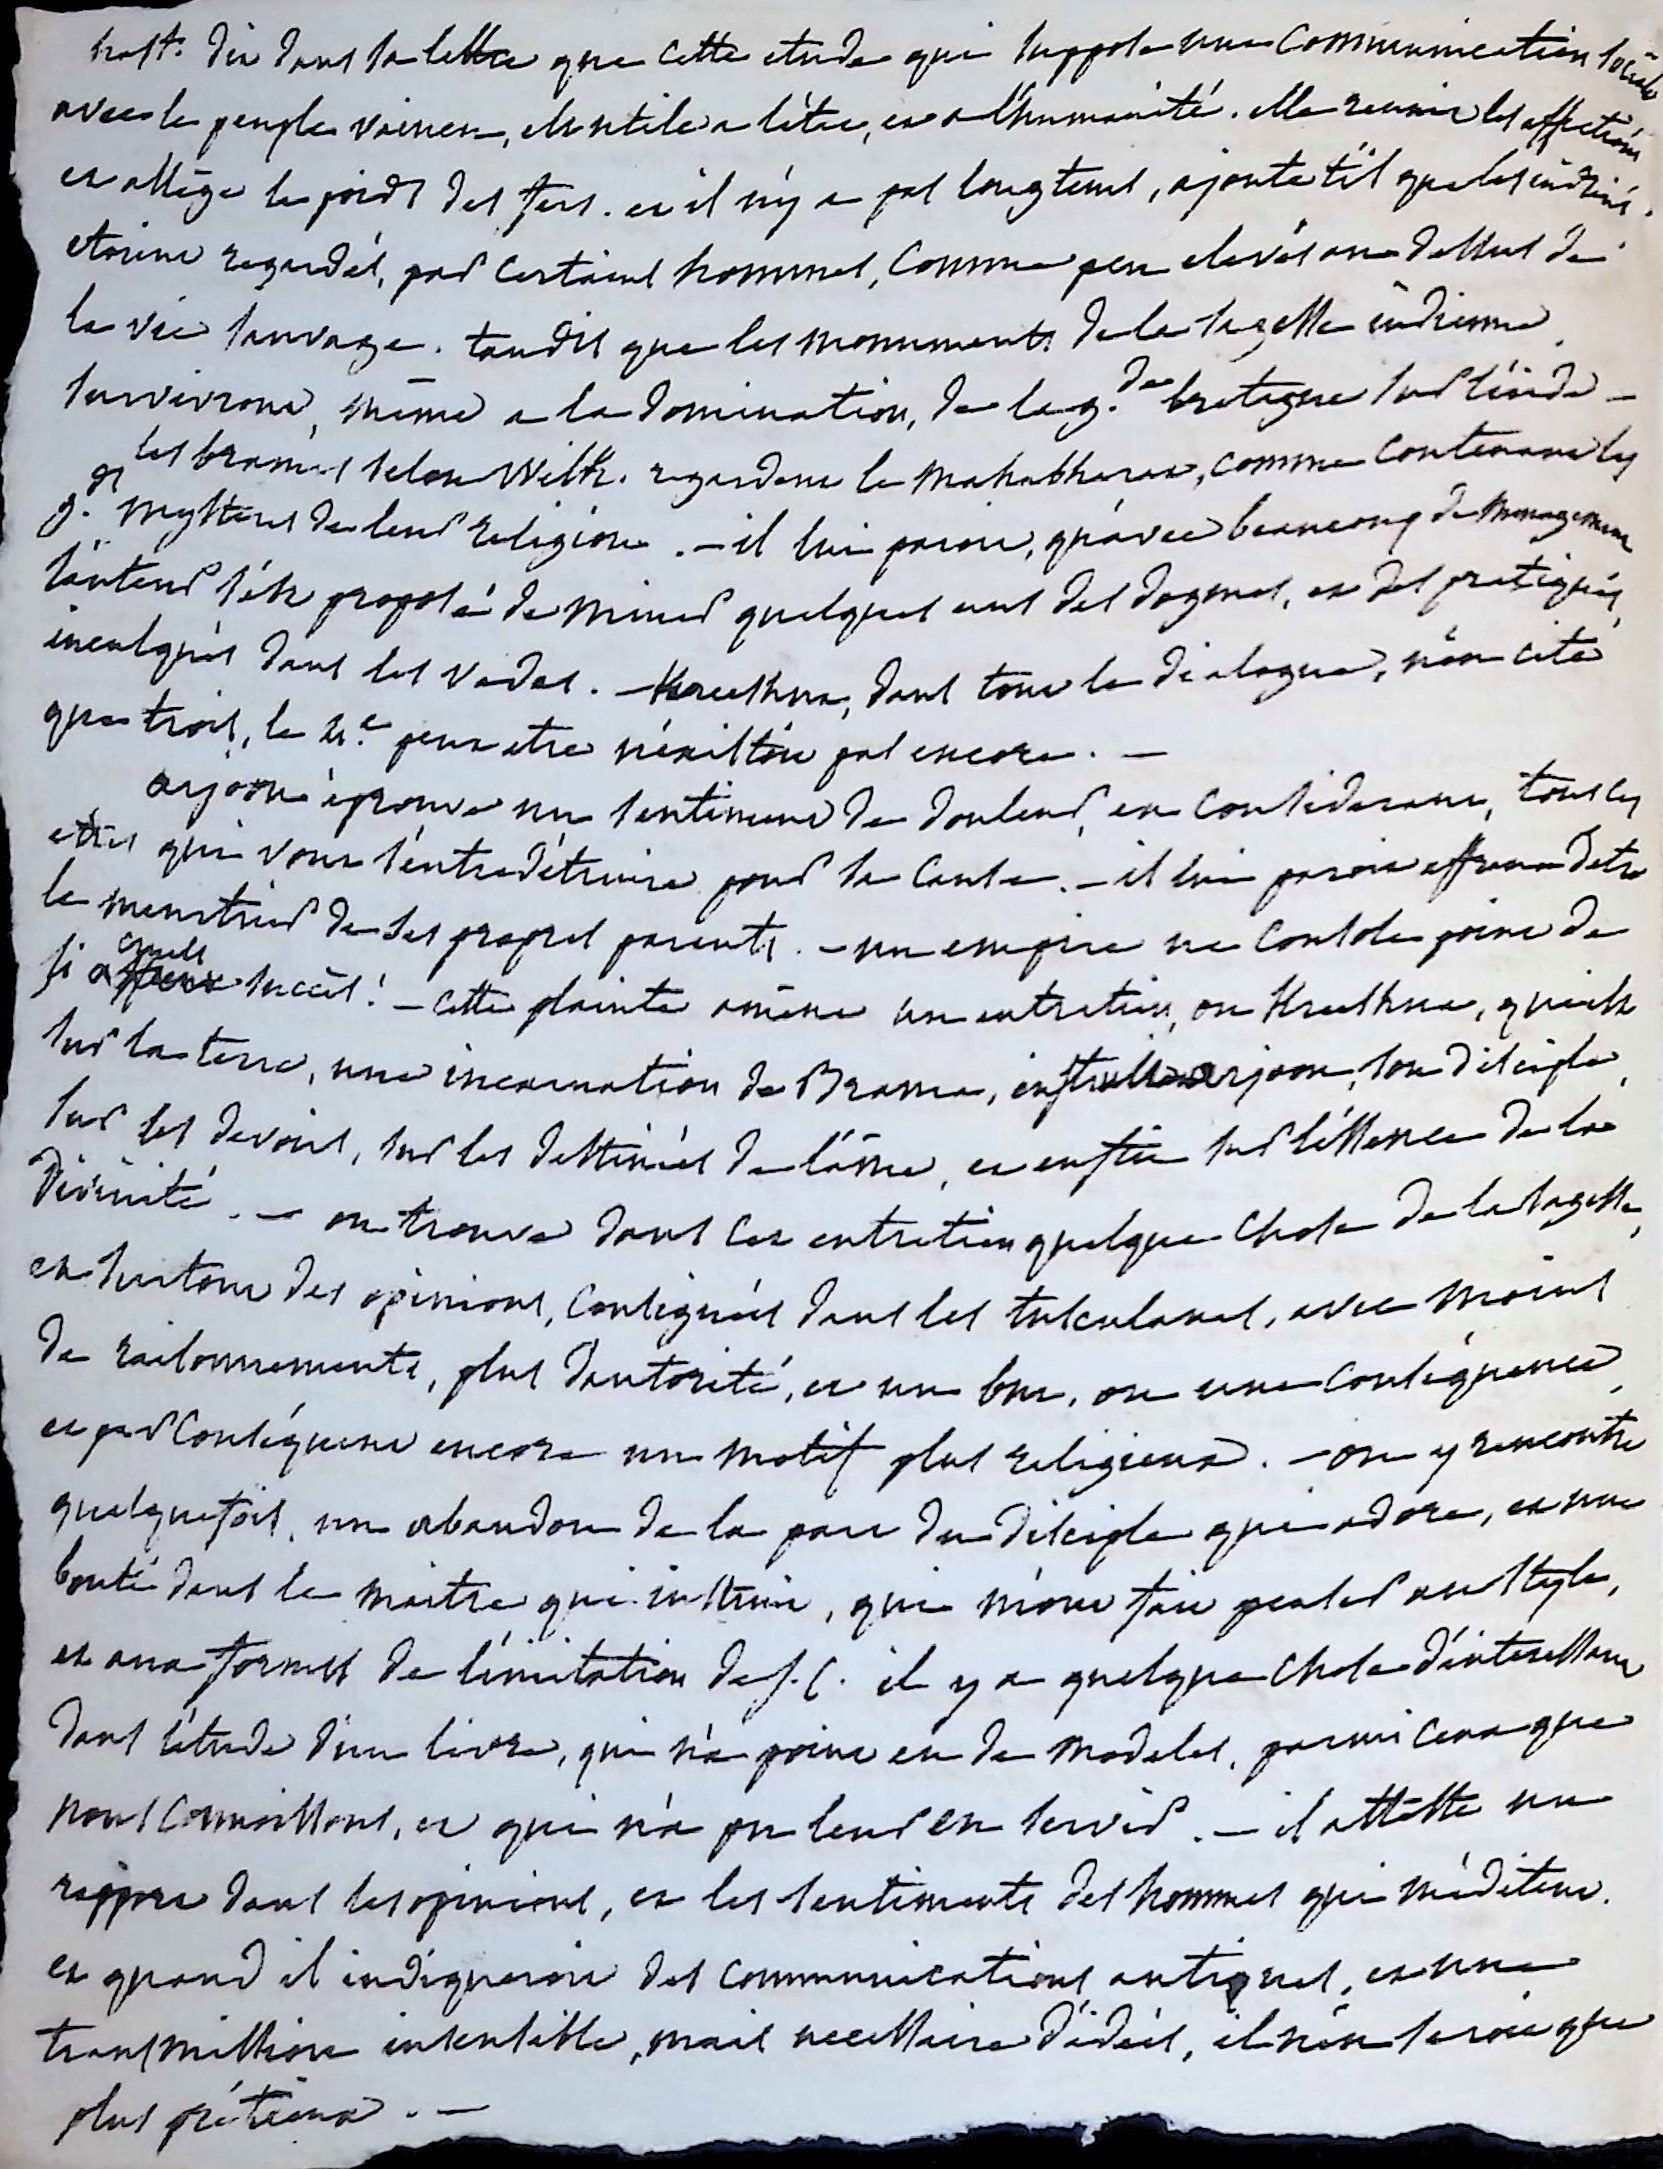 hast. dit dans sa lettre que cette etude qui suppose une communication sociale
avec le peuple vaincu, est utile a l'état, et a l'humanité. elle reunit les affections
et allége le poids des fers. et il n'y a pas longtems, ajoute t'il que les indiens
etoient regardés, par certains hommes, comme peu elevés au dessus de
la vie sauvage. tandis que les monuments de la sagesse indienne
survivront, même a la domination, de la g.de bretagne sur l'inde —
les brames selon Wilk. regardent le Mahabharat, comme contenant les
g.ds mysteres de leur religion. — il lui paroit, qu'avec beaucoup de menagement
l'auteur s'est proposé de miner quelques uns des dogmes, et des pratiques,
inculqués dans les vedas. — Kreeshna, dans tout le dialogue, n'en cite
que trois, le 4.e peut etre n'existoit pas encore. —
arjoon éprouve un sentiment de douleur, en considerant, tous les
etres qui vont s'entredétruire pour sa cause. — il lui paroit affreux d'etre
le meurtrier de ses propres parents. — un empire ne console point de
si cruels succès! — cette plainte améne un entretien, ou Kreeshna, qui est
sur la terre, une incarnation de Brama, instruit arjoon, son disciple,
sur les devoirs, sur les destinées de l'âme, et enfin sur l'essence de la
divinité. — on trouve dans cet entretien quelque chose de la sagesse,
et surtout des opinions, consignées dans les tusculanes, avec moins
de raisonnements, plus d'autorité, et un but, ou une conséquence,
et par conséquent encore un motif plus religieux. — on y rencontre
quelquefois, un abandon de la part du disciple qui adore, et une
bonté dans le maitre qui instruit, qui m'ont fait penser au style,
et aux formes de l'imitation de J. C. il y a quelque chose d'interessant
dans l'étude d'un livre, qui n'a point eu de modeles, parmi ceux que
nous connoissons, et qui n'a pu leur en servir. — il atteste un
rapport dans les opinions, et les sentiments des hommes qui méditent.
et quand il indiqueroit des communications antiques, et une
transmission insensible, mais necessaire d'idées, il n'en seroit que
plus prétieux. —